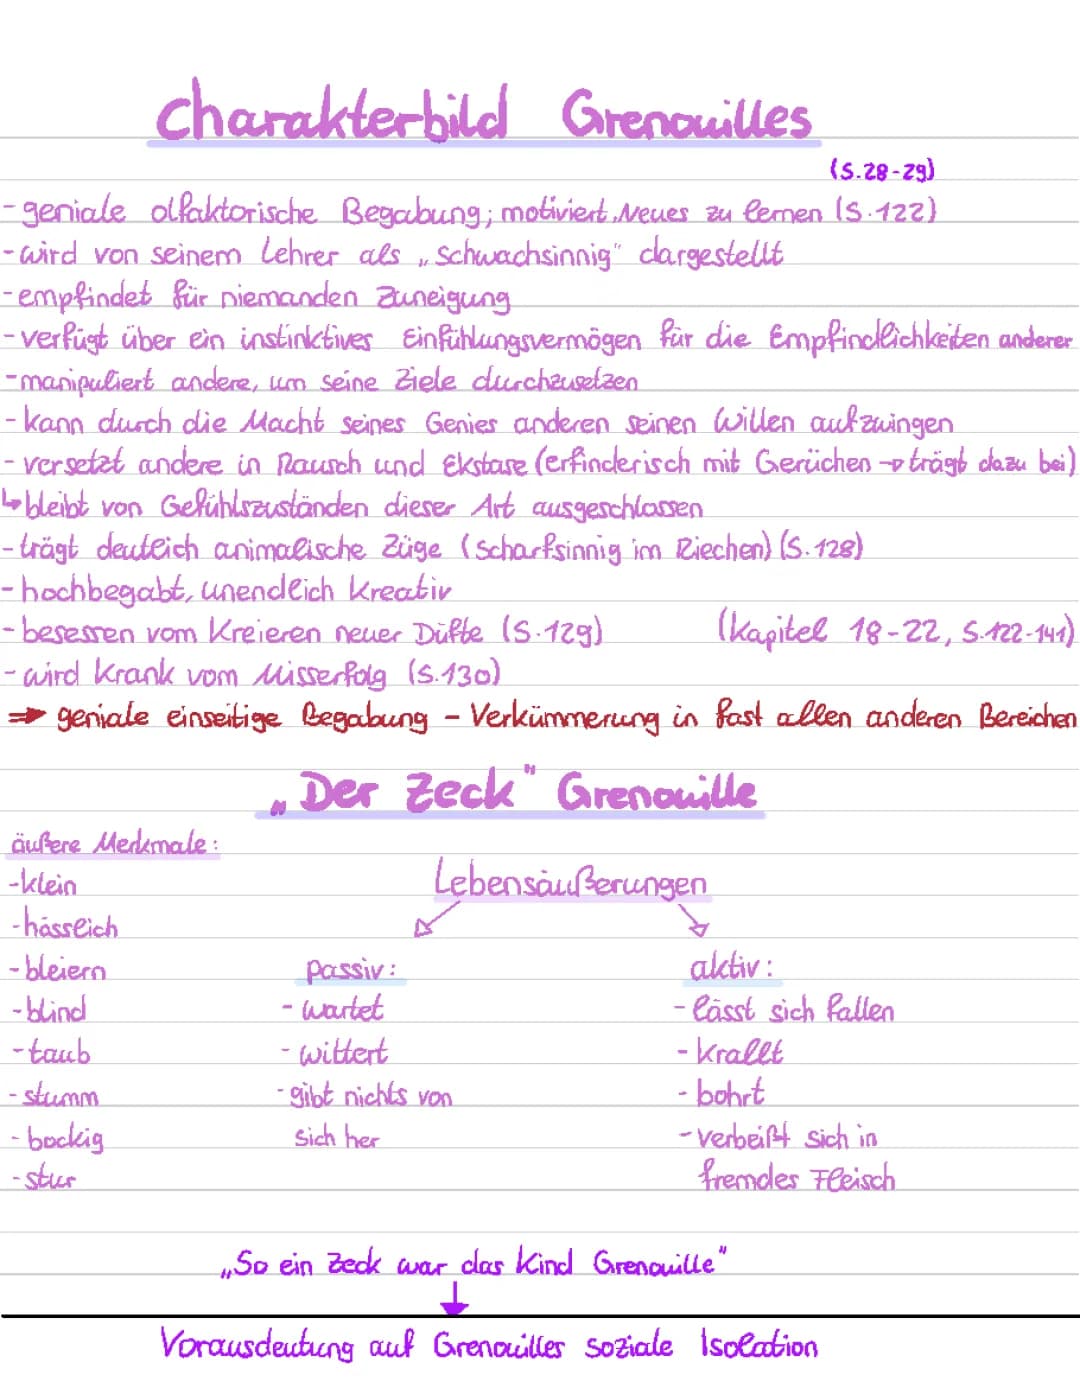 Charakterbild Grenouilles
(S.28-29)
- geniale olfaktorische Begabung; motiviert, Neues zu lernen (S.122)
- wird von seinem Lehrer als „Schwachsinnig" dargestellt
- empfindet für niemanden Zuneigung
- verfügt über ein instinktives Einfühlungsvermögen für die Empfindlichkeiten anderer
- manipuliert andere, um seine Ziele durchzusetzen
- kann durch die Macht seines Genies anderen seinen Willen aufzwingen
- versetzt andere in Rausch und Ekstase (erfinderisch mit Gerüchen → trägt dazu bei)
↳ bleibt von Gefühlszuständen dieser Art ausgeschlossen
- trägt deutlich animalische Züge (Scharfsinnig im Riechen) (S.128)
- hochbegabt, unendlich kreativ
- besessen vom Kreieren neuer Düfte (S.129) (Kapitel 18-22, S.122-141)
- wird krank vom Misserfolg (S.130)
⇒ geniale einseitige Begabung - Verkümmerung in fast allen anderen Bereichen
„Der Zeck" Grenouille
äußere Merkmale:
- klein
- hässlich
- bleiern
- blind
- taub
- stumm
- bockig
- stur
Lebensäußerungen
passiv:
- wartet
- wittert
- gibt nichts von
sich her
aktiv:
- lässt sich fallen
- krallt
- bohrt
- verbeißt sich in
fremdes Fleisch
„So ein Zeck war das Kind Grenouille"
↓
Vorausdeutung auf Grenouilles soziale Isolation